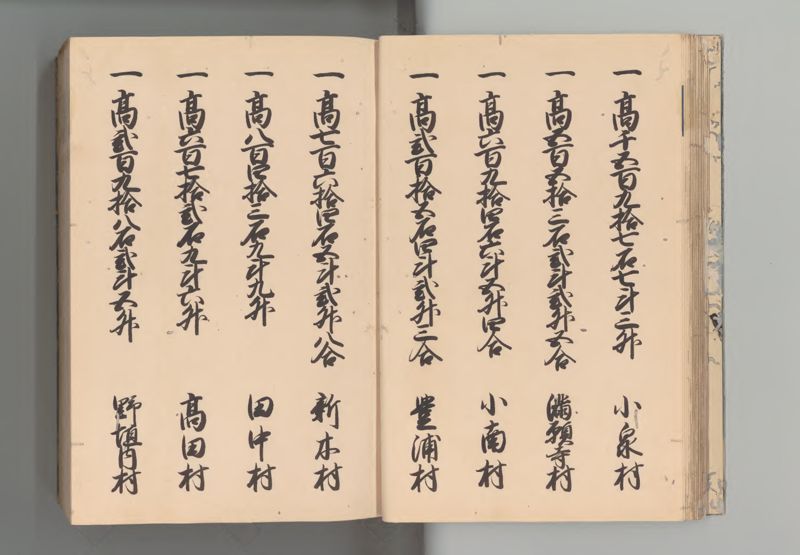 一 高千五百九拾七石七斗三升 小泉村
一 高五百五拾三石弐斗弐升五合 満願寺村
一 高六百九拾四石六斗五升四合 小南村
一 高弐百拾五石四斗弐升三合 豊浦村
一 高七百六拾四石五斗弐升八合 新木村
一 高八百四拾三石九斗九升 田中村
一 高六百七拾弐石九斗六升 高田村
一 高弐百九拾八石弐斗五升 野垣内村